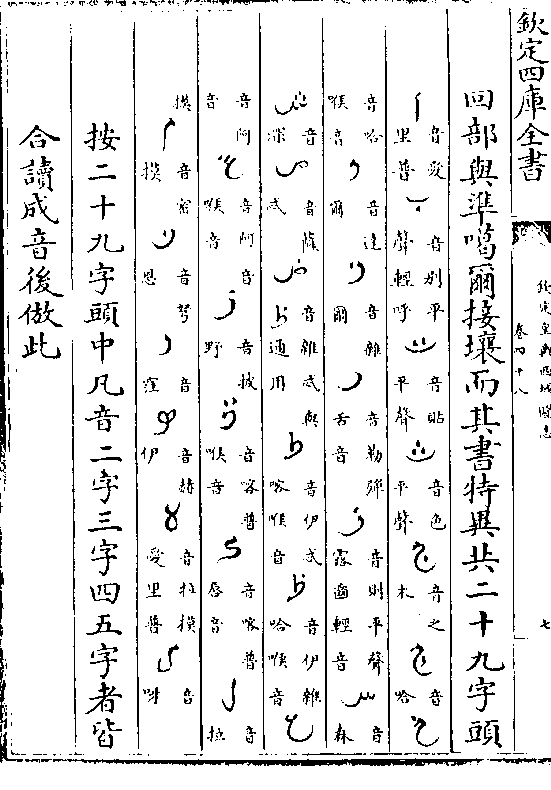 欽定四庫全書
欽定皇輿西域圖志
卷四十八
七
回部與準噶爾接壤而其書特異共二十九字頭
ا 音愛里普 ب 音別平聲輕呼 ت 音貼平聲 ث 音色平聲 ج 音之木 ح 音哈 خ
音哈喉音 د 音達爾 ذ 音雜爾 ر 音勒彈舌音 ز 音則平聲露齒輕音 س 音森
ش 音深 ص 音薩忒 ض 音雜忒與ط通用 ط 音伊忒喀喉音 ظ 音伊雜哈喉音 ع
音阿音 غ 音阿音喉音 ف 音披野 ق 音喀普喉音 ك 音喀普唇音 ل 音拉
摸 م 音密摸 ن 音努恩 و 音窪 ه 音赫伊 لا 音拉摸愛里普 ي 音呀
按二十九字頭中凡音二字三字四五字者皆
合讀成音後倣此